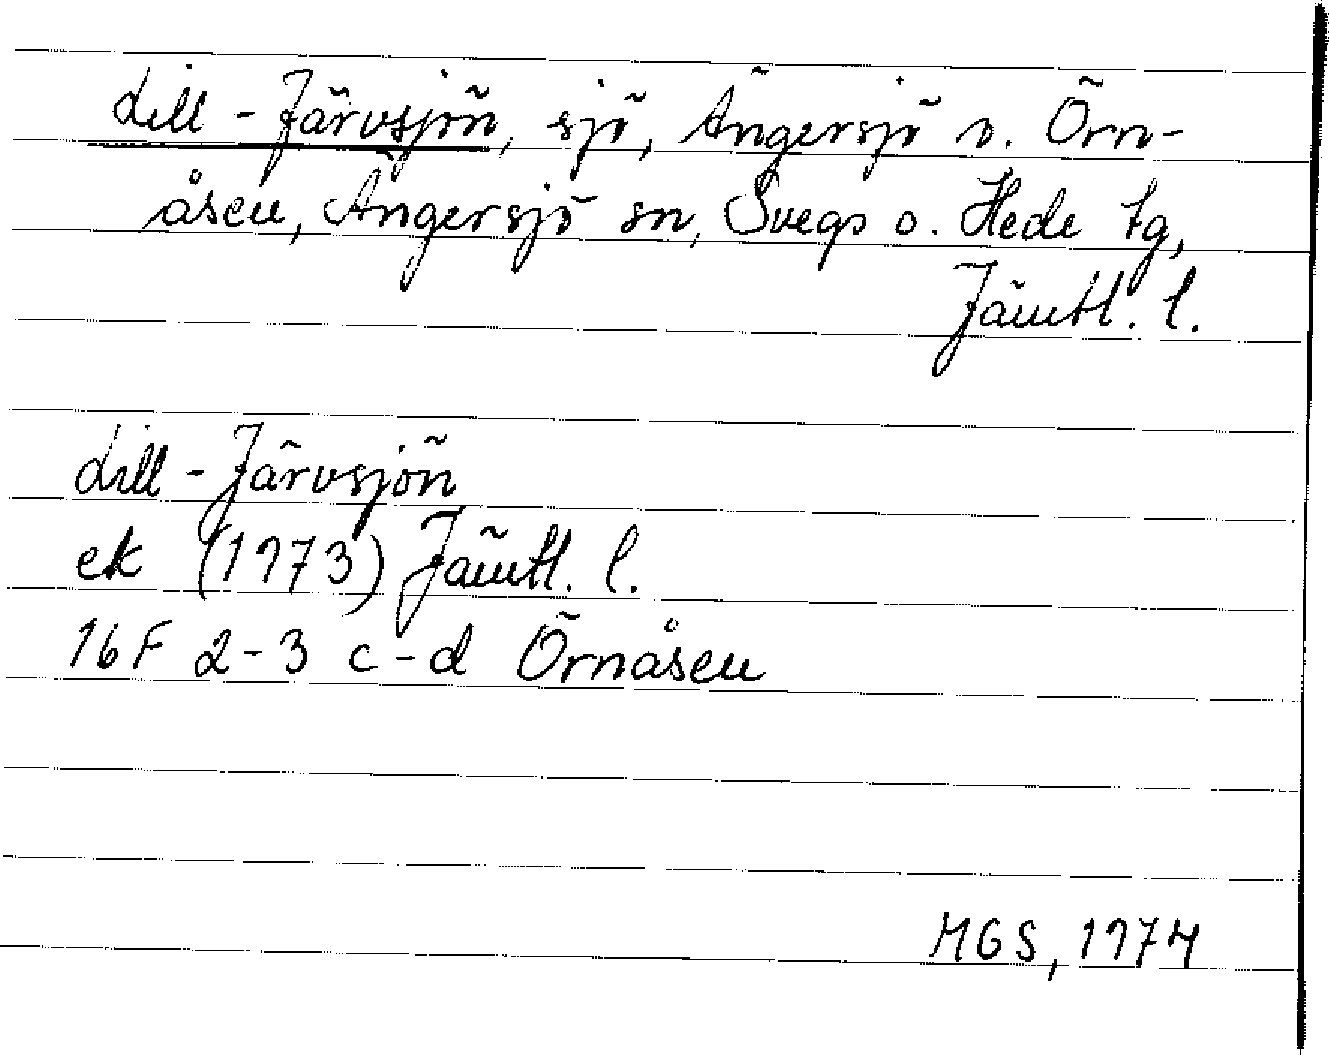 Lill-Järvsjön, sjö, Ängersjö o. Örn-
åsen, Ängersjö sn, Svegs o. Hede tg,
Jämtl. l.
Lill-Järvsjön
ek (1973) Jämtl. l.
16F 2-3 c-d Örnåsen
MGS, 1974